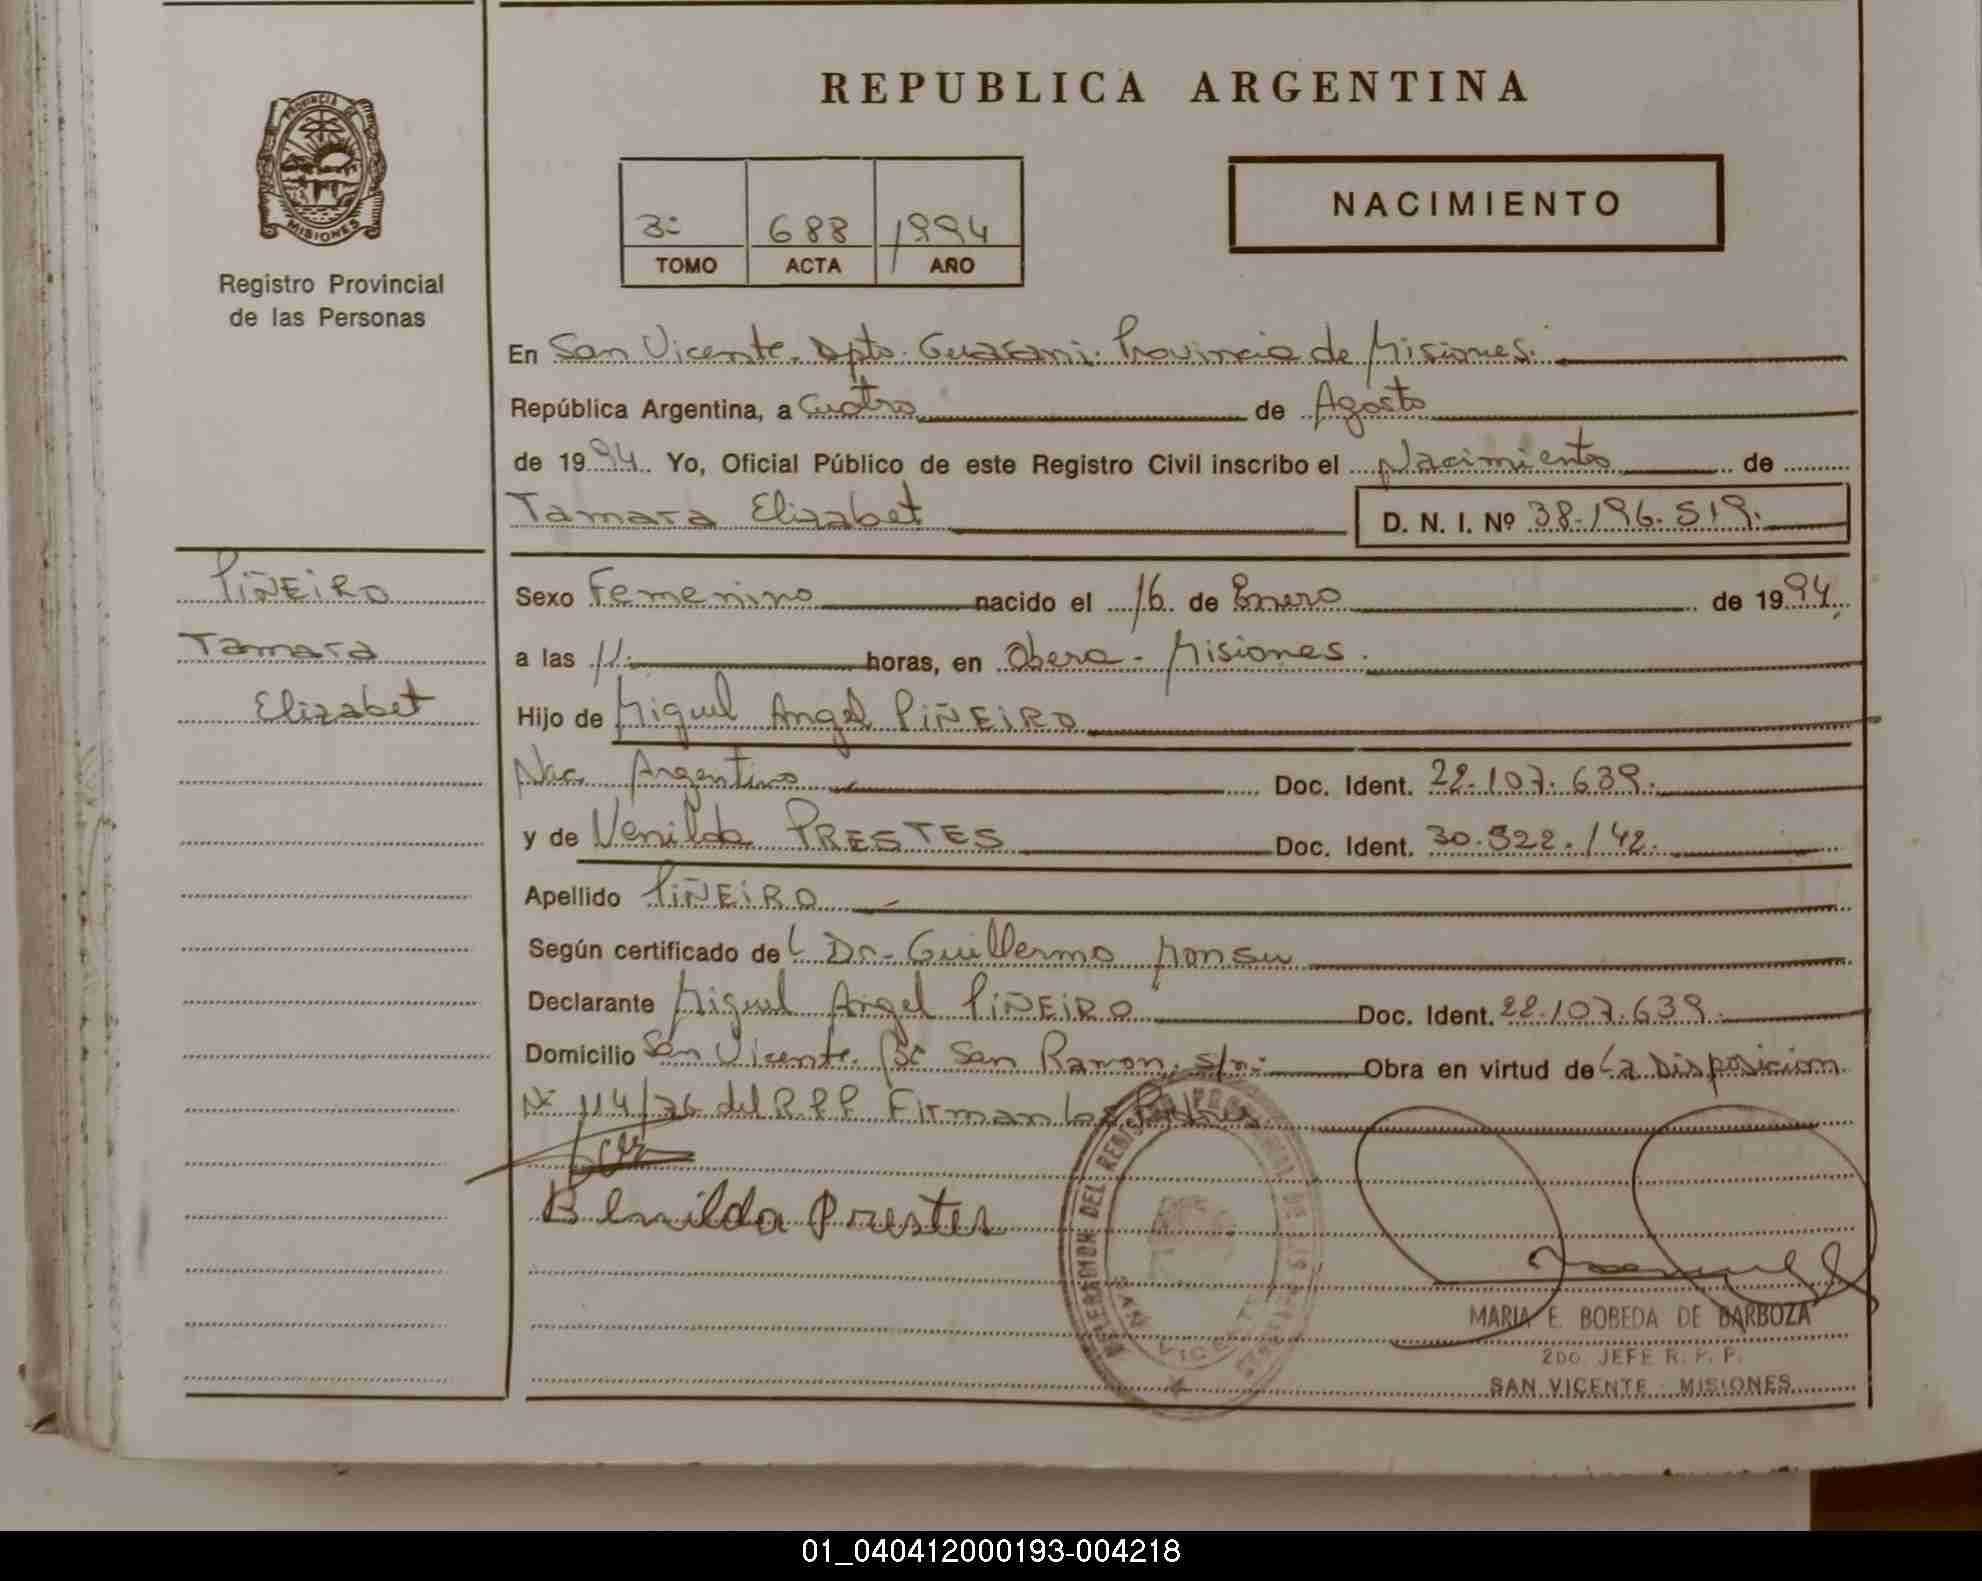 REPUBLICA ARGENTINA
PROVINCIA DE
MISIONES
Registro Provincial
de las Personas
3º 688 1994
TOMO ACTA AÑO
NACIMIENTO
En San Vicente. Dpto. Guarani. Provincia de Misiones.
República Argentina, a Cuatro de Agosto
de 1994. Yo, Oficial Público de este Registro Civil inscribo el Nacimiento de
Tamara Elizabet D. N. I. Nº 38.196.519.
PIÑEIRO
Tamara
Elizabet
Sexo Femenino nacido el 16 de Enero de 1994.
a las 11. horas, en Obera - Misiones.
Hijo de Miguel Angel PIÑEIRO
Nac. Argentino Doc. Ident. 22.107.639.
y de Venilda PRESTES Doc. Ident. 30.522.142.
Apellido PIÑEIRO
Según certificado del Dr. Guillermo Monsu
Declarante Miguel Angel PIÑEIRO Doc. Ident. 22.107.639.
Domicilio San Vicente. Bº San Ramon. s/n: Obra en virtud de La Disposicion
Nº 114/76 del R.P.P Firman los Padres
Benilda Prestes
SAN VICENTE
MARIA E. BOBEDA DE BARBOZA
2DO. JEFE R. P. P.
SAN VICENTE - MISIONES
01_040412000193-004218